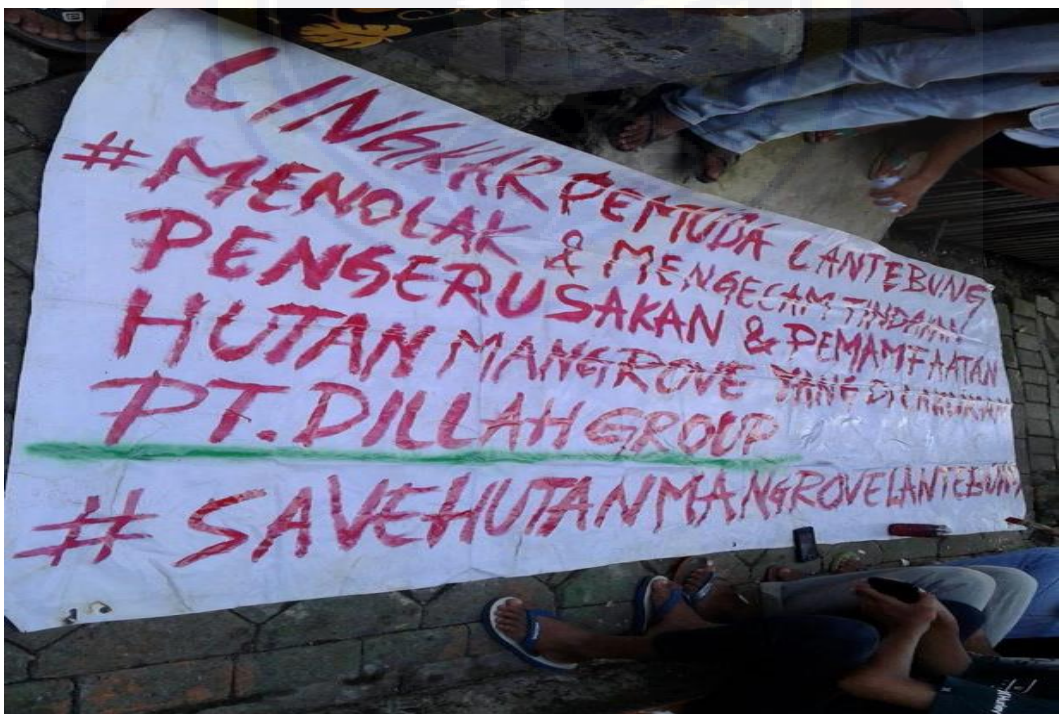 LINGKAR PEMUDA LANTEBUNG
#MENOLAK & MENGECAM TINDAKAN
PENGERUSAKAN & PEMAMFAATAN
HUTAN MANGROVE YANG DILAKUKAN
PT.DILLAH GROUP
#SAVEHUTANMANGROVELANTEBUNG